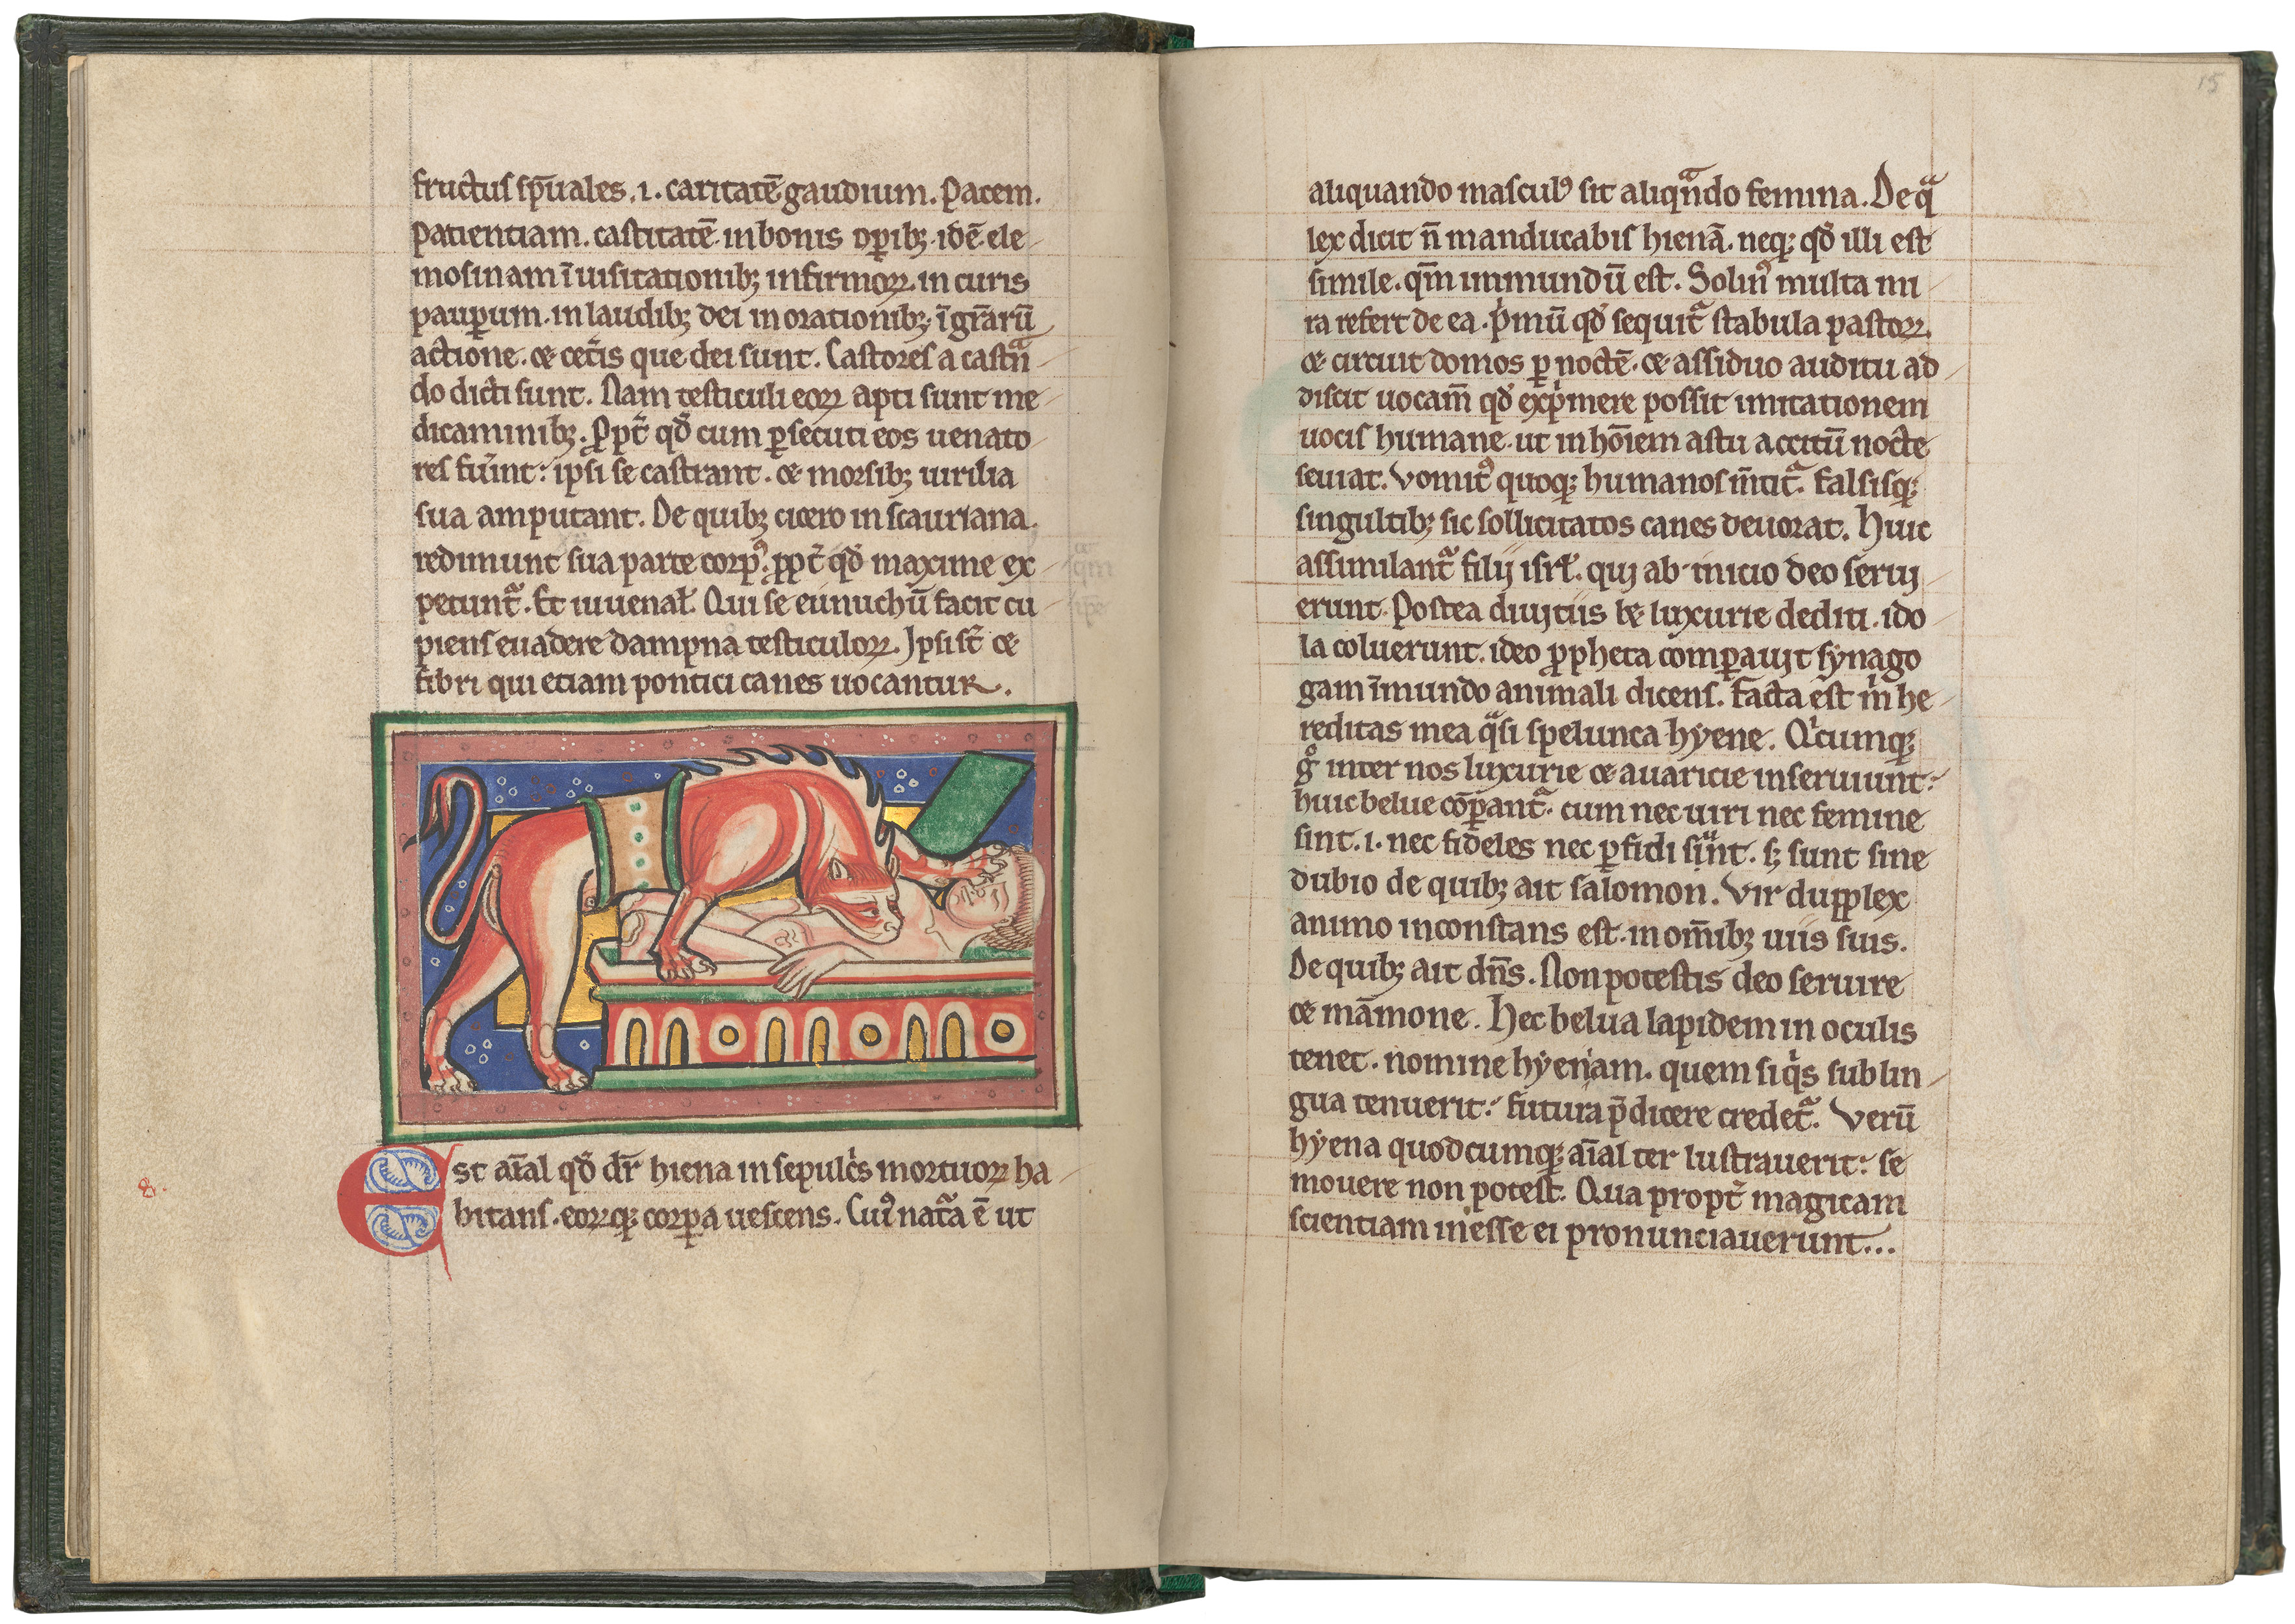 fructus sp̄uales. i. caritatē gaudium. Pacem.
Patientiam. castitatē. in bonis op̄ibꝫ. idē ele
mosinam ī uisitationibꝫ infirmoꝝ. in curis
paup̄um. in laudibꝫ dei in orationibꝫ. ī gr̄arū
actione. ⁊ cet̄is que dei sunt. Castores a castᷓn
do dicti sunt. Nam testiculi eoꝝ apti sunt me
dicaminibꝫ. Ꝓpt̄ qđ cum ꝑsecuti eos uenato
res fu̾int: ipsi se castrant. ⁊ morsibꝫ uirilia
sua amputant. De quibꝫ cicero in scauriana.
redimunt sua parte corpꝰ. ꝓpt̄ qđ maxime ex
petuntᷓ. Et iuuenal̵. Qui se eunuchū facit cu
piens euadere dampna testiculoꝝ. Ipsi st̄ ⁊
fibri qui etiam pontici canes uocantur.
8.
Est aīal qđ dr̄ hiena in sepulcͥs mortuoꝝ ha
bitans. eoꝝqꝫ corꝑa uescens. Cuiꝰ natᷓa ē ut
15
aliquando masculꝰ sit aliqᷓndo femina. De qᷓ
lex dicit n̄ manducabis hienā. neqꝫ qđ illi est
simile. qm̄ inmundū est. Solinꝰ multa mi
ra refert de ea. pͥmū qđ sequitᷓ stabula pastoꝝ.
⁊ circuit domos ꝑ noctē. ⁊ assiduo auditu ad
discit uocam̄ qđ expͥmere possit imitationem
uocis humane. ut in hōiem astu accitū nocte
seuiat. Vomitꝰ quoqꝫ humanos m̄titᷓ. falsisqꝫ
singultibꝫ sic sollicitatos canes deuorat. Huic
assimilantᷓ filij isrl̵. qui ab inicio deo serui
erunt. Postea diuitiis ⁊ luxurie dediti. ido
la coluerunt. ideo ꝓpheta comꝑauit synago
gam īmundo animali dicens. Facta est mͥ he
reditas mea qᷓsi spelunca hyene. Qͥcumqꝫ
gͦ inter nos luxurie ⁊ auaricie inseruiunt:
huic belue cōꝑantᷓ. cum nec uiri nec femine
sint. i. nec fideles nec ꝑfidi sint. sꝫ sunt sine
dubio de quibꝫ ait salomon. Vir dupplex
animo inconstans est. in om̄ibꝫ uiis suis.
De quibꝫ ait dn̄s. Non potestis deo seruire
⁊ māmone. Hec belua lapidem in oculis
tenet. nomine hyeniam. quem siqͥs sub lin
gua tenuerit: futura p̄dicere credetᷓ. Verū
hyena quodcumqꝫ aīal ter lustrauerit: se
mouere non potest. Qua propt̄ magicam
scientiam inesse ei pronunciauerunt...